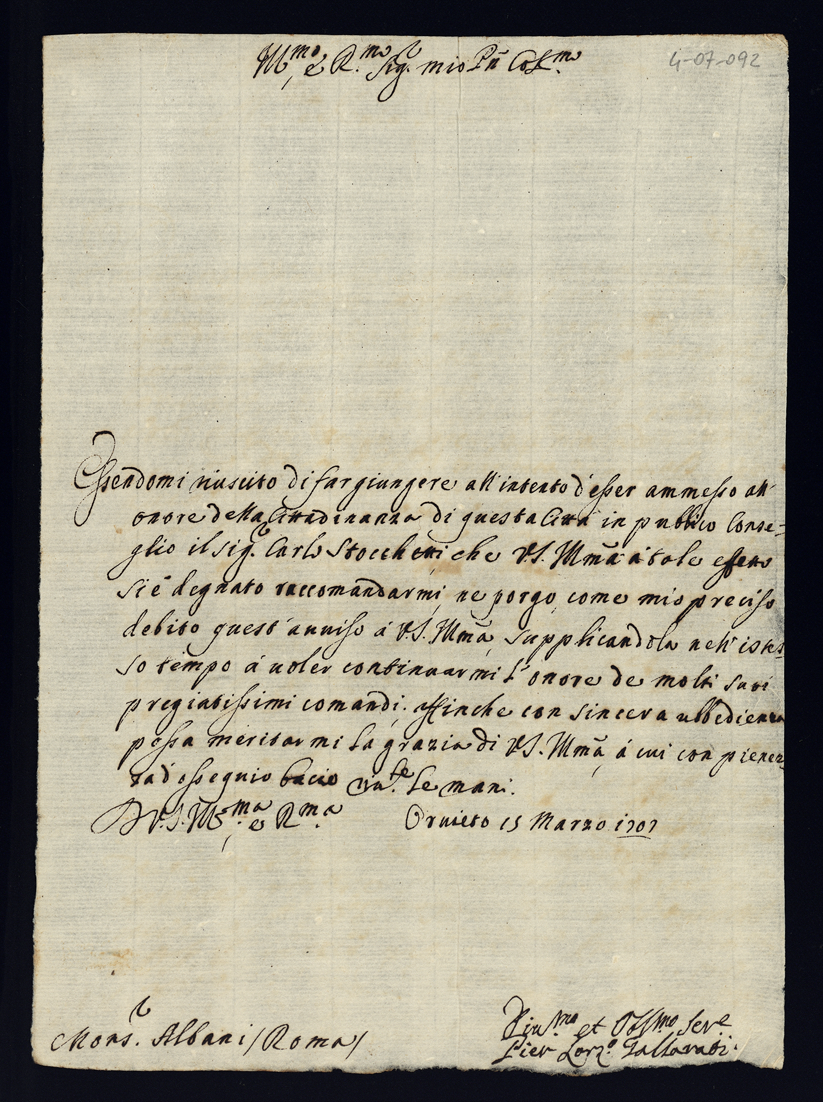 Ill.mo, e R.mo Sig.r mio P̄ñ Col.mo
4-07-092
Essendomi riuscito di far giungere all'intento d'esser ammesso all'
onore della Cittadinanza di questa Città in publico Conse-
glio il Sig.r Carlo Stocchetti che V.S. Ill̃ma à tale effetto
si è degnato raccomandarmi, ne porgo come mio preciso
debito quest'avviso à V.S. Ill̃ma, supplicandola nell'istes-
so tempo à voler continuarmi l'onore de molti suoi
pregiatissimi comandi, affinche con sincera ubbedienza
possa meritarmi la grazia di V.S. Ill̃ma, à cui con pienez-
za d'ossequio bacio le mani.
D V.S. Ill.ma, e R.ma Orvieto 15 Marzo 1707
Mons.r Albani / Roma /
et Obl.mo Ser.e
Pier Lor.zo